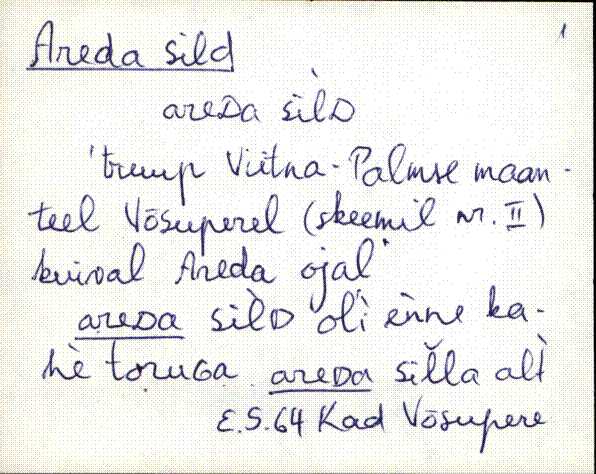 Areda sild 1
areDa sìlD
'truup Viitna-Palmse maan-
teel Võsuperel (skeemil nr. II)
kuival Areda ojal'
areDa sìlD ol'i ènne ka-
hè toruGa. areDa silla alt
E.S. 64 Kad Võsupere